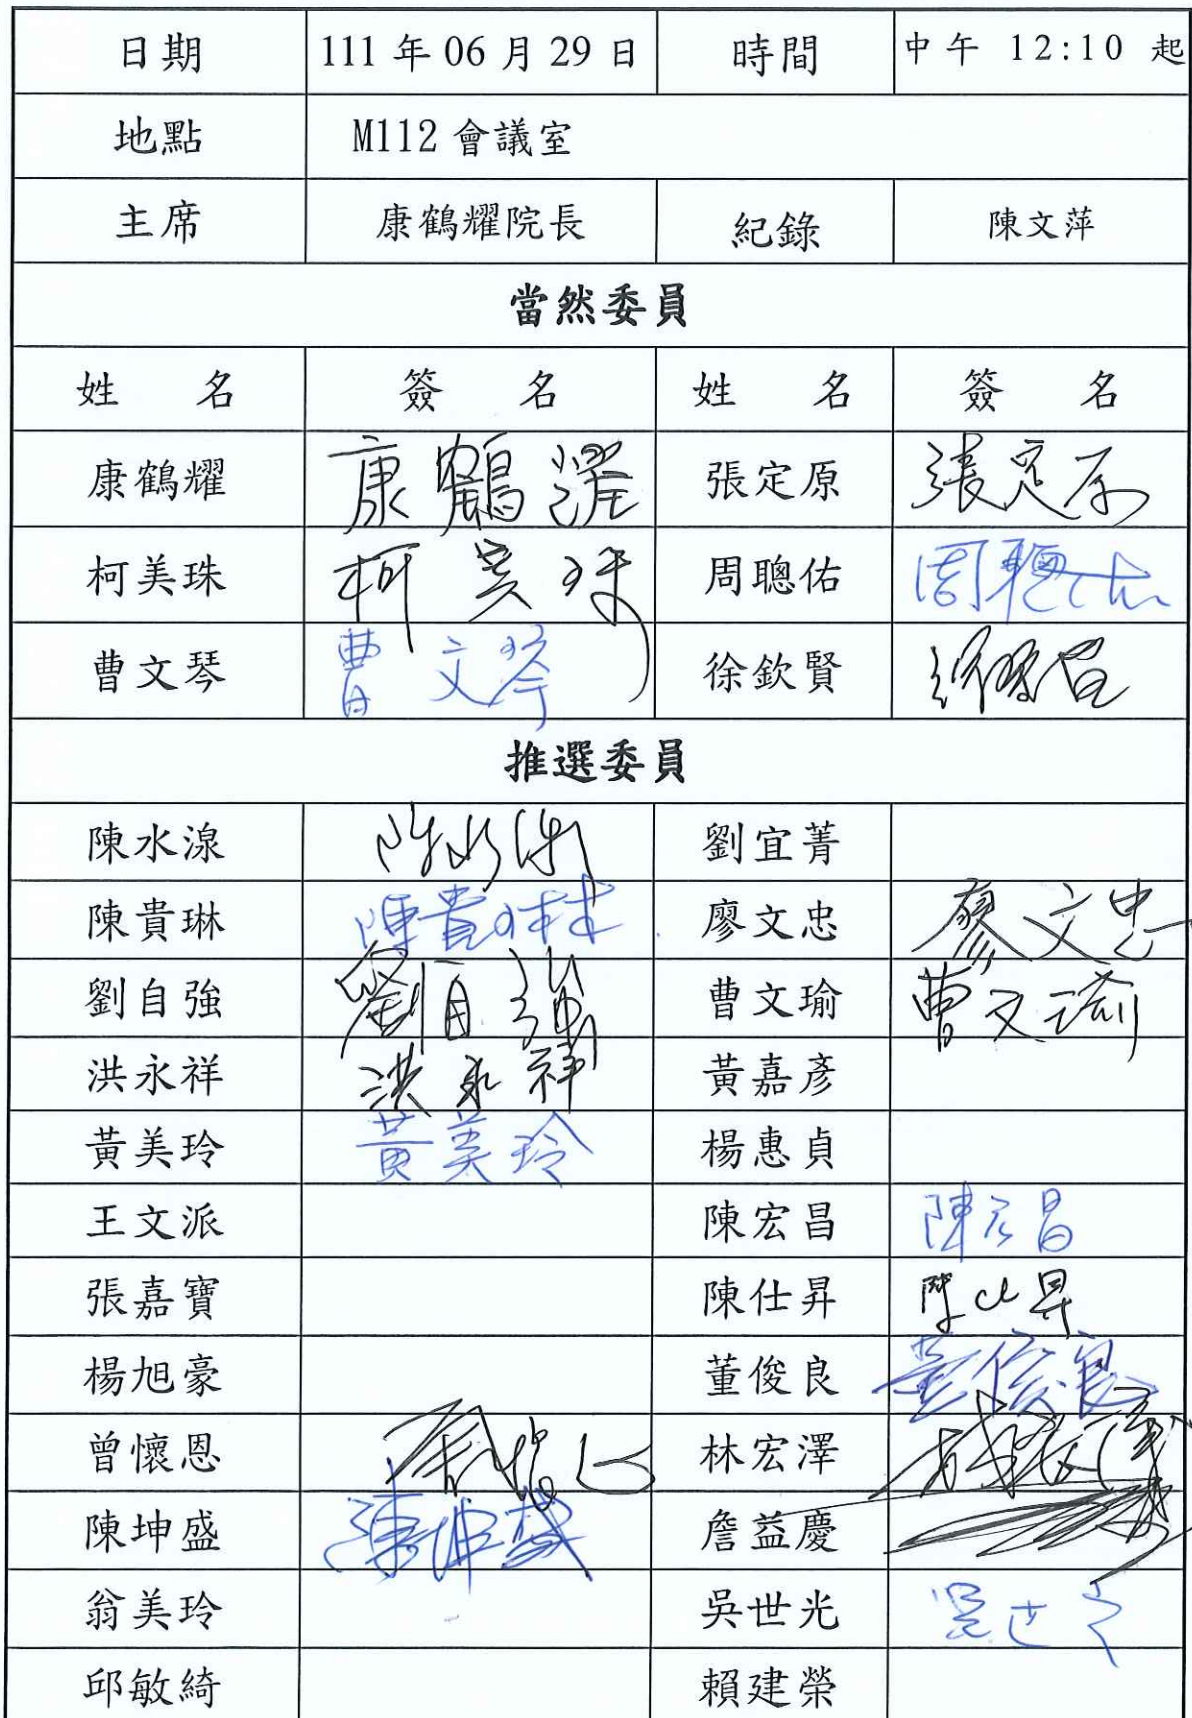 日期 111 年 06 月 29 日 時間 中午 12:10 起
地點 M112 會議室
主席 康鶴耀院長 紀錄 陳文萍
當然委員
姓 名 簽 名 姓 名 簽 名
康鶴耀 康鶴耀 張定原 張定原
柯美珠 柯美珠 周聰佑 周聰佑
曹文琴 曹文琴 徐欽賢
推選委員
陳水湶 劉宜菁
陳貴琳 陳貴琳 廖文忠 廖文忠
劉自強 劉自強 曹文瑜 曹文瑜
洪永祥 洪永祥 黃嘉彥
黃美玲 黃美玲 楊惠貞
王文派 陳宏昌 陳宏昌
張嘉寶 陳仕昇 陳仕昇
楊旭豪 董俊良 董俊良
曾懷恩 林宏澤
陳坤盛 陳坤盛 詹益慶
翁美玲 吳世光 吳世光
邱敏綺 賴建榮